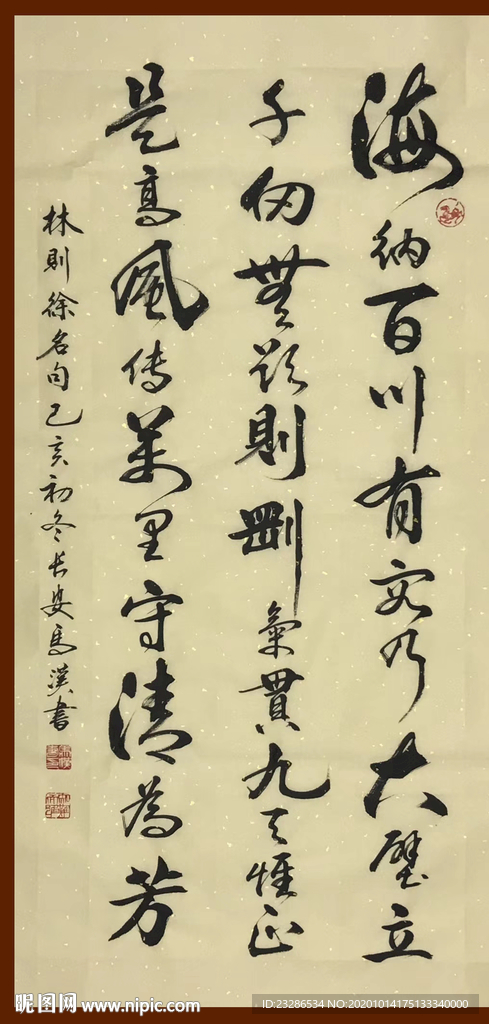 海纳百川有容乃大壁立
千仞無欲則剛氣貫九天惟正
是高風传萬里守清為芳
林則徐名句乙亥初冬长安馬漢書
昵图网 www.nipic.com
ID:23286534 NO:20201014175133340000